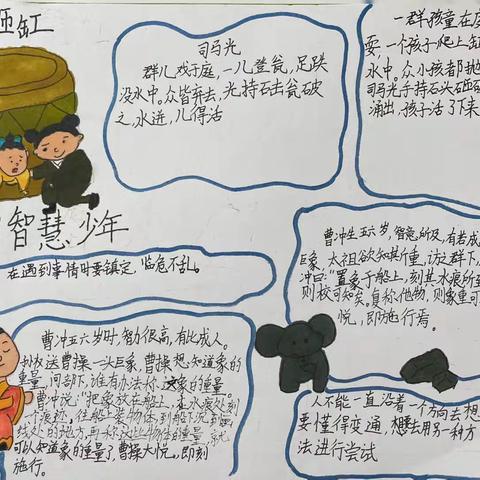 砸缸
司马光
群儿戏于庭，一儿登瓮，足跌
没水中。众皆弃去，光持石击瓮破
之，水迸，儿得活
一群孩童在庭
耍一个孩子爬上缸
水中。众小孩都抛
司马光手持石头砸破
涌出，孩子活了下来
智慧少年
在遇到事情时要镇定，临危不乱。
曹冲生五六岁，智意所及，有若成
巨象，太祖欲知其斤重，访之群下，
冲曰："置象于船上，刻其水痕所至
则校可知矣。复称他物，则象重可
悦，即施行焉。
曹冲五六岁时，智力很高，有比成人。
孙权送曹操一头巨象，曹操想知道象的
重量，问部下，谁有办法称这象的重量。
曹冲说："把象放在船上，在水痕处刻
下痕迹，往船上装物体，到船沉到画
线处的地方，再称这些物体的重量，就
可以知道象的重量了曹操大悦，即刻
施行。
人不能一直沿着一个方向去想
要懂得变通，想要去用另一种方
法进行尝试